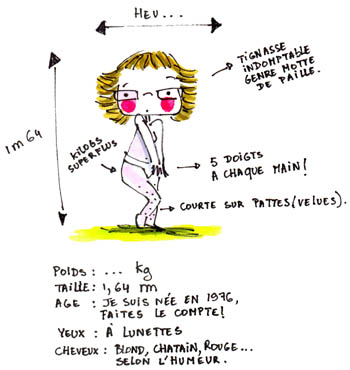 HEU...
TIGNASSE
INDOMPTABLE
GENRE MOTTE
DE PAILLE.
1m64
KILOGS
SUPERFLUS
5 DOIGTS
A CHAQUE MAIN!
COURTE SUR PATTES (VELUES).
POIDS : ... kg
TAILLE : 1,64 m
AGE : JE SUIS NÉE EN 1976,
FAITES LE COMPTE!
YEUX : À LUNETTES
CHEVEUX : BLOND, CHATAIN, ROUGE...
SELON L'HUMEUR.